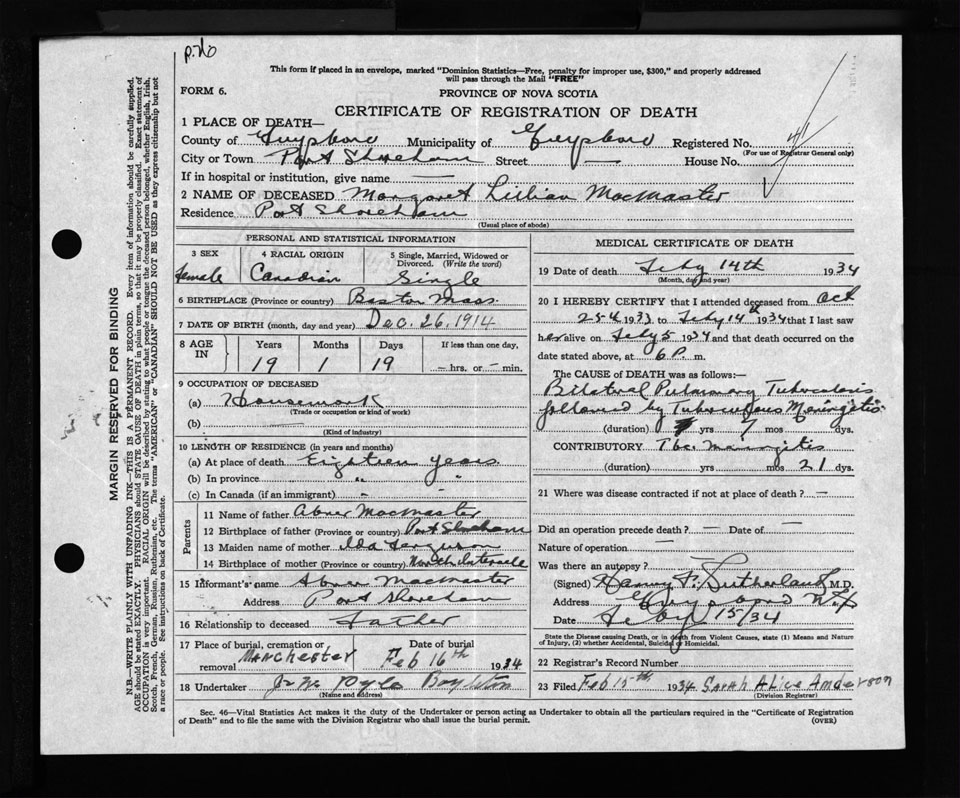 p. no
This form if placed in an envelope, marked "Dominion Statistics—Free, penalty for improper use, $300," and properly addressed
will pass through the Mail "FREE"
FORM 6.
PROVINCE OF NOVA SCOTIA
CERTIFICATE OF REGISTRATION OF DEATH
1 PLACE OF DEATH—
County of Guysboro Municipality of Guysboro Registered No. 41
(For use of Registrar General only)
City or Town Port Shoreham Street — House No.
If in hospital or institution, give name —
2 NAME OF DECEASED Margaret Lillian MacMaster
Residence Port Shoreham
(Usual place of abode)
PERSONAL AND STATISTICAL INFORMATION
3 SEX 4 RACIAL ORIGIN 5 Single, Married, Widowed or
Divorced. (Write the word)
female Canadian Single
6 BIRTHPLACE (Province or country) Boston Mass
7 DATE OF BIRTH (month, day and year) Dec. 26, 1914
8 AGE IN Years Months Days If less than one day,
19 1 19 — hrs. or — min.
9 OCCUPATION OF DECEASED
(a) Housework
(Trade or occupation or kind of work)
(b) —
(Kind of industry)
10 LENGTH OF RESIDENCE (in years and months)
(a) At place of death Eighteen years
(b) In province " "
(c) In Canada (if an immigrant) - -
Parents
11 Name of father Abner MacMaster
12 Birthplace of father (Province or country) Port Shoreham
13 Maiden name of mother Ida Ferguson
14 Birthplace of mother (Province or country) North Intervale
15 Informant's name Abner MacMaster
Address Port Shoreham
16 Relationship to deceased Father
17 Place of burial, cremation or removal Date of burial
Manchester Feb 16th 1934
18 Undertaker Boylston
(Name and address)
MEDICAL CERTIFICATE OF DEATH
19 Date of death Feby 14th 1934
(Month, day and year)
20 I HEREBY CERTIFY that I attended deceased from Oct
25th 1933 to Feby 14th 1934 that I last saw
her alive on Feby 5 1934 and that death occurred on the
date stated above, at 6 P. m.
The CAUSE OF DEATH was as follows:—
Bilateral Pulmonary Tuberculosis
followed by Tuberculous Meningitis
(duration) yrs 7 mos dys.
CONTRIBUTORY Tbc. Meningitis
(duration) yrs mos 21 dys.
21 Where was disease contracted if not at place of death? —
Did an operation precede death? — Date of —
Nature of operation —
Was there an autopsy?
(Signed) Sutherland M.D.
Address Guysboro N.S.
Date Feby 15/34
State the Disease causing Death, or in death from Violent Causes, state (1) Means and Nature
of Injury, (2) whether Accidental, Suicidal or Homicidal.
22 Registrar's Record Number
23 Filed Feb 15th 1934 Sarah Alice Anderson
(Division Registrar)
Sec. 46—Vital Statistics Act makes it the duty of the Undertaker or person acting as Undertaker to obtain all the particulars required in the "Certificate of Registration
of Death" and to file the same with the Division Registrar who shall issue the burial permit.
(OVER)
MARGIN RESERVED FOR BINDING
N.B.—WRITE PLAINLY WITH UNFADING INK—THIS IS A PERMANENT RECORD. Every item of information should be carefully supplied.
AGE should be stated EXACTLY. PHYSICIANS should STATE CAUSE OF DEATH in plain terms, so that it may be properly classified. Exact statement of
OCCUPATION is very important. RACIAL ORIGIN will be described by stating to what people or tongue the deceased person belonged, whether English, Irish,
Scotch, French, German, Russian, Ruthenian, etc. The terms "AMERICAN" or "CANADIAN" SHOULD NOT BE USED as they express citizenship but not
a race or people. See instructions on back of Certificate.